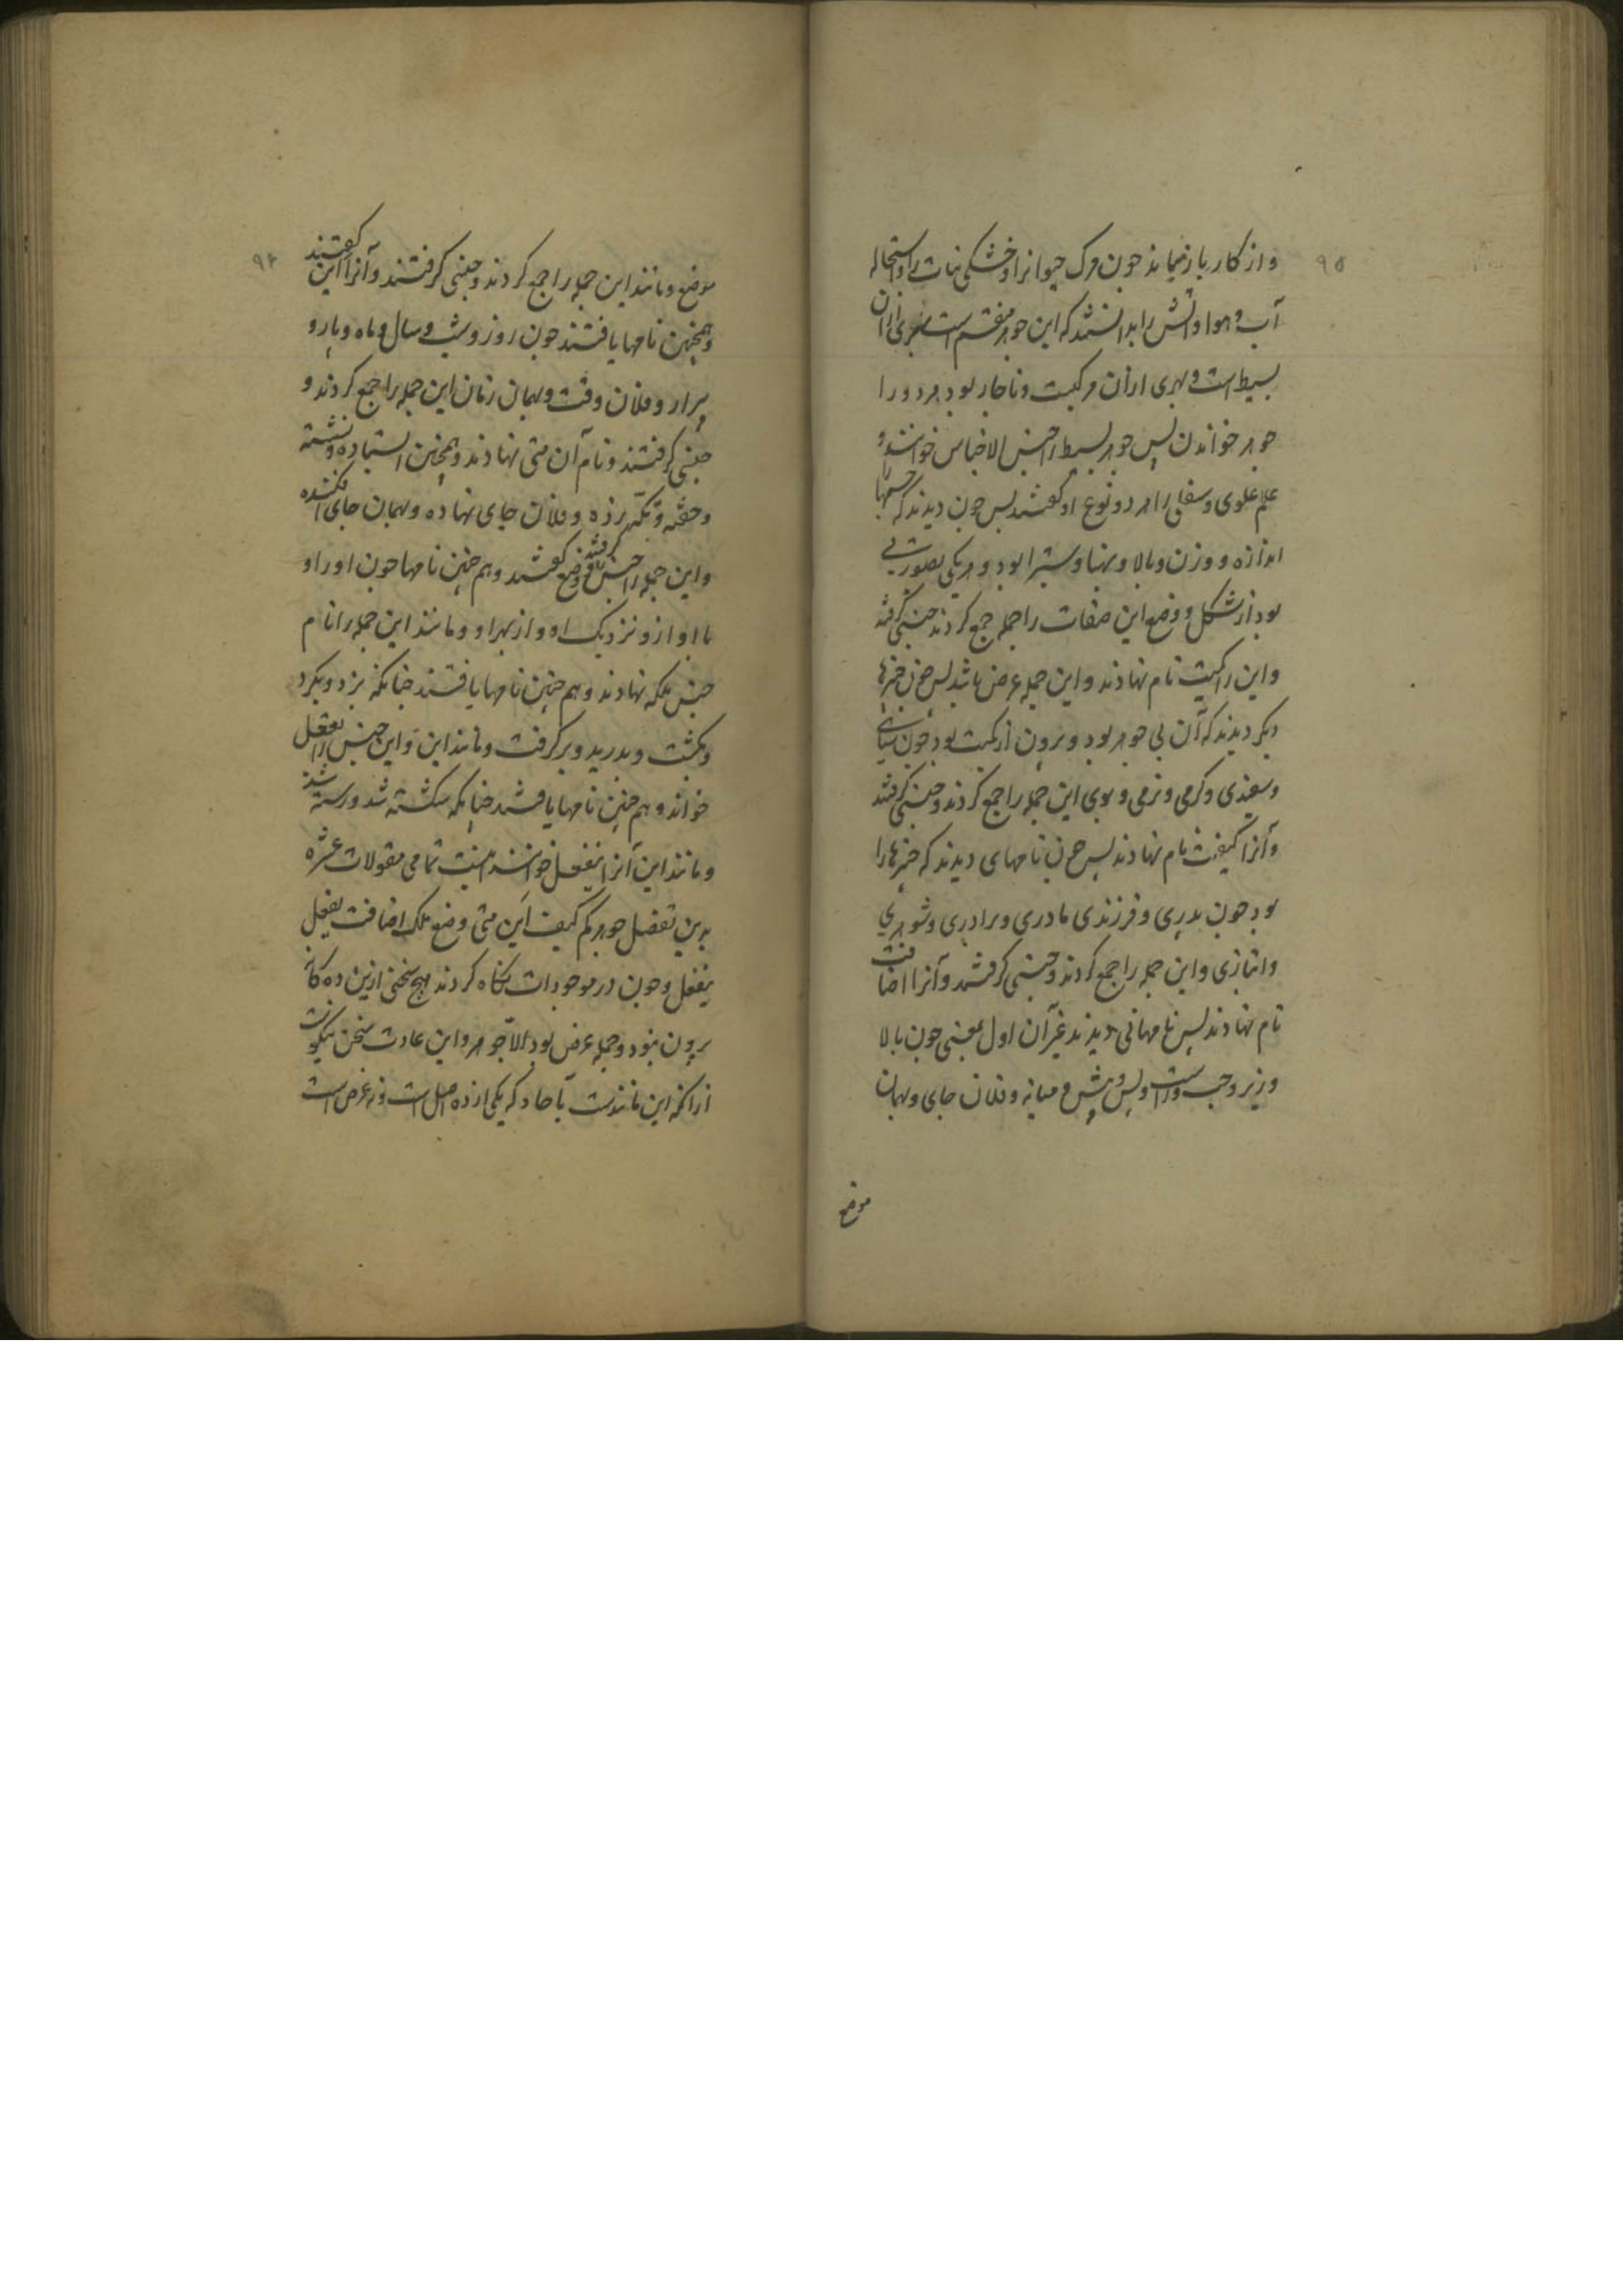 ۹۵
و از کار باز نماند چون مرک حیوانرا و خشکی نبات را و استحاله
آب و هوا و آتش را بدانستند که این جوهر منقسم است بهری ازان
بسیط است و بهری ازان مرکبست و ناچار بود هر دو را
جوهر خواندن پس جوهر بسیط را جنس الاجناس خواندند و
علم علوی و سفلی را هر دو نوع او کفتند پس چون دیدند که جسمها را
اندازه و وزن و بالا و پهنا و ستبرا بود و هر یکی بصورتی
بود از شکل و وضع این صفات را جمله جمع کردند جنسی کرفتند
و این را کمیت نام نهادند و این جمله عرض باشد پس چون چیزها
دیکر دیدند که آن بی جوهر بود و برون از کمیت بود چون سیاهی
و سفیدی و کرمی و نرمی و بوی این جمله را جمع کردند و جنسی کرفتند
و آنرا کیفیت نام نهادند پس چون نامهای دیدند که چیزها را
بود چون پدری و فرزندی مادری و برادری و شوهری
و انبازی و این جمله را جمع کردند و جنسی کرفتند و آنرا اضافت
نام نهادند پس نامهائی دیدند غیر آن اول بمعنی چون بالا
و زیر و چپ و راست و پس و پیش و میانه و فلان جای و بهمان
موضع
۹۴
موضع و مانند این جمله را جمع کردند و جنسی کرفتند و آنرا این کفتند
و همچنین نامها یافتند چون روز و شب و سال و ماه و پار و
پرار و فلان وقت و بهمان زمان این جمله را جمع کردند و
جنسی کرفتند و نام آن متی نهادند و همچنین استاده و نشسته
و خفته و تکیه زده و فلان جای نهاده و بهمان جای افکنده
و این جمله را جنس کرفتند و وضع کفتند و هم چنین نامها چون او را و
با او از و نزدیک او و از بهر او و مانند این جمله را نام
جنس ملکه نهادند و هم چنین نامها یافتند چنانکه بزد و بکرد
و بکشت و بدرید و برکرفت و مانند این و این جنس را یفعل
خواند و هم چنین نامها یافتند چنانکه شکسته شد و رسته شد
و مانند این آنرا ینفعل خواندند اینست تمامی مقولات عشره
بدین تفصیل جوهر کم کیف این متی وضع ملک اضافت یفعل
ینفعل و چون در موجودات نکاه کردند هیچ سخنی ازین ده کانه
برون نبود و جمله عرض بود الا جوهر و این عادت سخن نیکوست
ازانکه این مانندست بآحاد که یکی از ده اصل است و نه عرض است